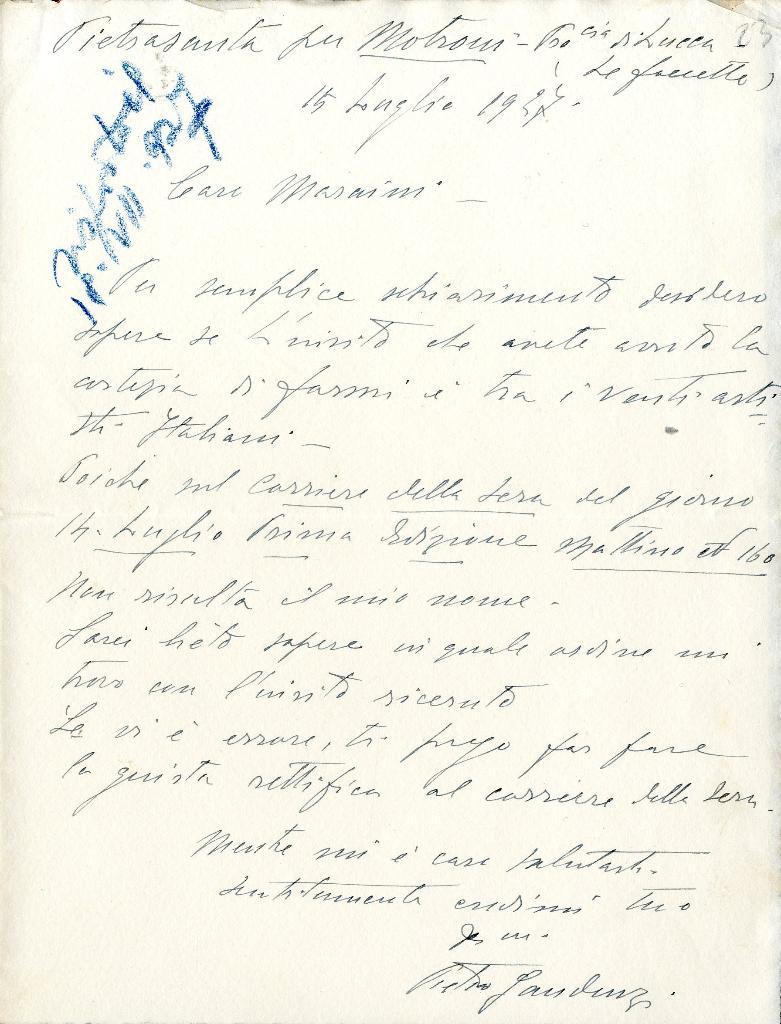 23
Pietrasanta per Motrone - Pro cia di Lucca -
( Le focette )
15 Luglio 1927 -
Caro Maraini -
Per semplice schiarimento desidero
sapere se l'invito che avete avuto la
cortesia di farmi è tra i Venti arti-
sti Italiani -
Poichè sul Corriere della Sera del giorno
14 - Luglio Prima Edizione Mattino N 160
non risulta il mio nome -
Sarei lieto sapere in quale ordine mi
trovo con l'invito ricevuto
Se vi è errore, ti prego far fare
la giusta rettifica al corriere della Sera -
Mentre mi è caro salutarti
sentitamente credimi tuo
Pietro Gaudenzi